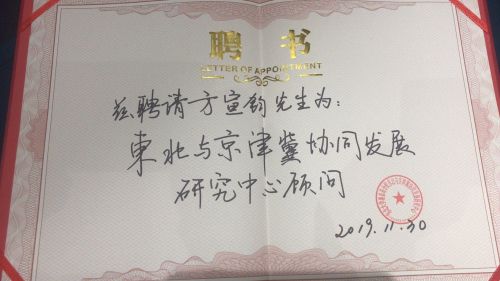 聘 书
LETTER OF APPOINTMENT
兹聘请方宣钧先生为:
東北与京津冀协同发展
研究中心顾问
2019.11.30